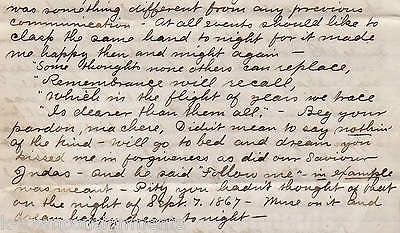 was something different from any previous
communication - At all events should like to
clasp the same hand to night for it made
me happy then and might again -
"Some thoughts none others can replace,
"Remembrance will recall,
"Which in the flight of years we trace
"Is dearer than them all," - Beg your
pardon, ma chere, Didn't mean to say nothin'
of the kind - will go to bed and dream you
kissed me in forgiveness as did our Saviour
Judas - and he said "Follow me" - in example
was meant - Pity you hadn't thought of that
on the night of Sept. 7. 1867 - Muse on it and
dream happy dreams to night -